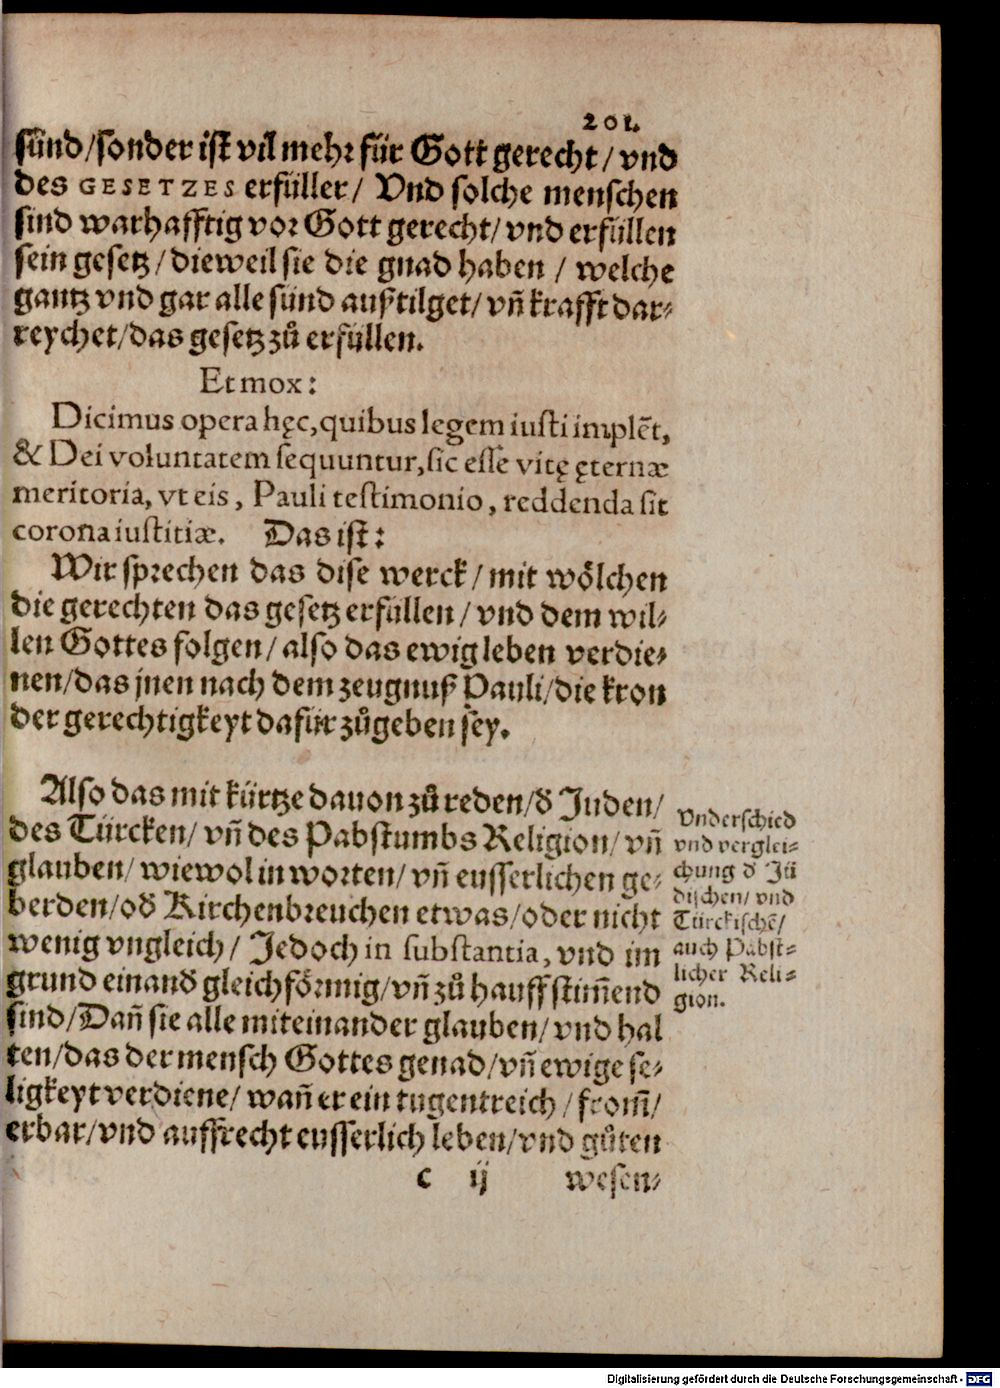 201.
sünd/sonder ist vil mehr für Gott gerecht/ vnd
des GESETZES erfüller/ Vnd solche menschen
sind warhafftig vor Gott gerecht/ vnd erfüllen
sein gesetz/dieweil sie die gnad haben / welche
gantz vnd gar alle sünd außtilget/ vñ krafft dar⸗
reychet/das gesetz zů erfüllen.
Et mox:
Dicimus opera hęc, quibus legem iusti implẽt,
& Dei voluntatem sequuntur, sic esse vitę ęternæ
meritoria, vt eis, Pauli testimonio, reddenda sit
corona iustitiæ. Das ist:
Wir sprechen das dise werck/ mit wölchen
die gerechten das gesetz erfüllen/ vnd dem wil⸗
len Gottes folgen/ also das ewig leben verdie⸗
nen/das jnen nach dem zeugnuß Pauli/die kron
der gerechtigkeyt dafür zůgeben sey.
Also das mit kürtze dauon zů reden/đ Juden/
des Türcken/ vñ des Pabstumbs Religion/ vñ
glauben/ wiewol in worten/ vñ eusserlichen ge⸗
berden/ođ Kirchenbreuchen etwas/oder nicht
wenig vngleich/ Jedoch in substantia, vnd im
grund einanđ gleichförmig/vñ zů hauff stim̃end
sind/Dañ sie alle miteinander glauben/ vnd hal
ten/das der mensch Gottes genad/vñ ewige se⸗
ligkeyt verdiene/ wañ er ein tugentreich / from̃/
erbar/vnd auffrecht eusserlich leben/vnd gůten
c ij wesen⸗
Vnderschied
vnd verglei⸗
chung đ Jü
dischen/ vnd
Türckischẽ/
auch Pabst⸗
licher Reli⸗
gion.
Digitalisierung gefördert durch die Deutsche Forschungsgemeinschaft - DFG